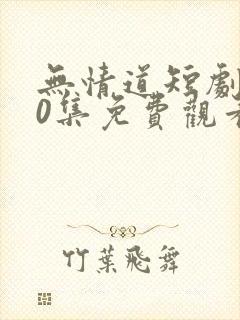 無情道短劇
0集免費觀看
竹葉飛舞